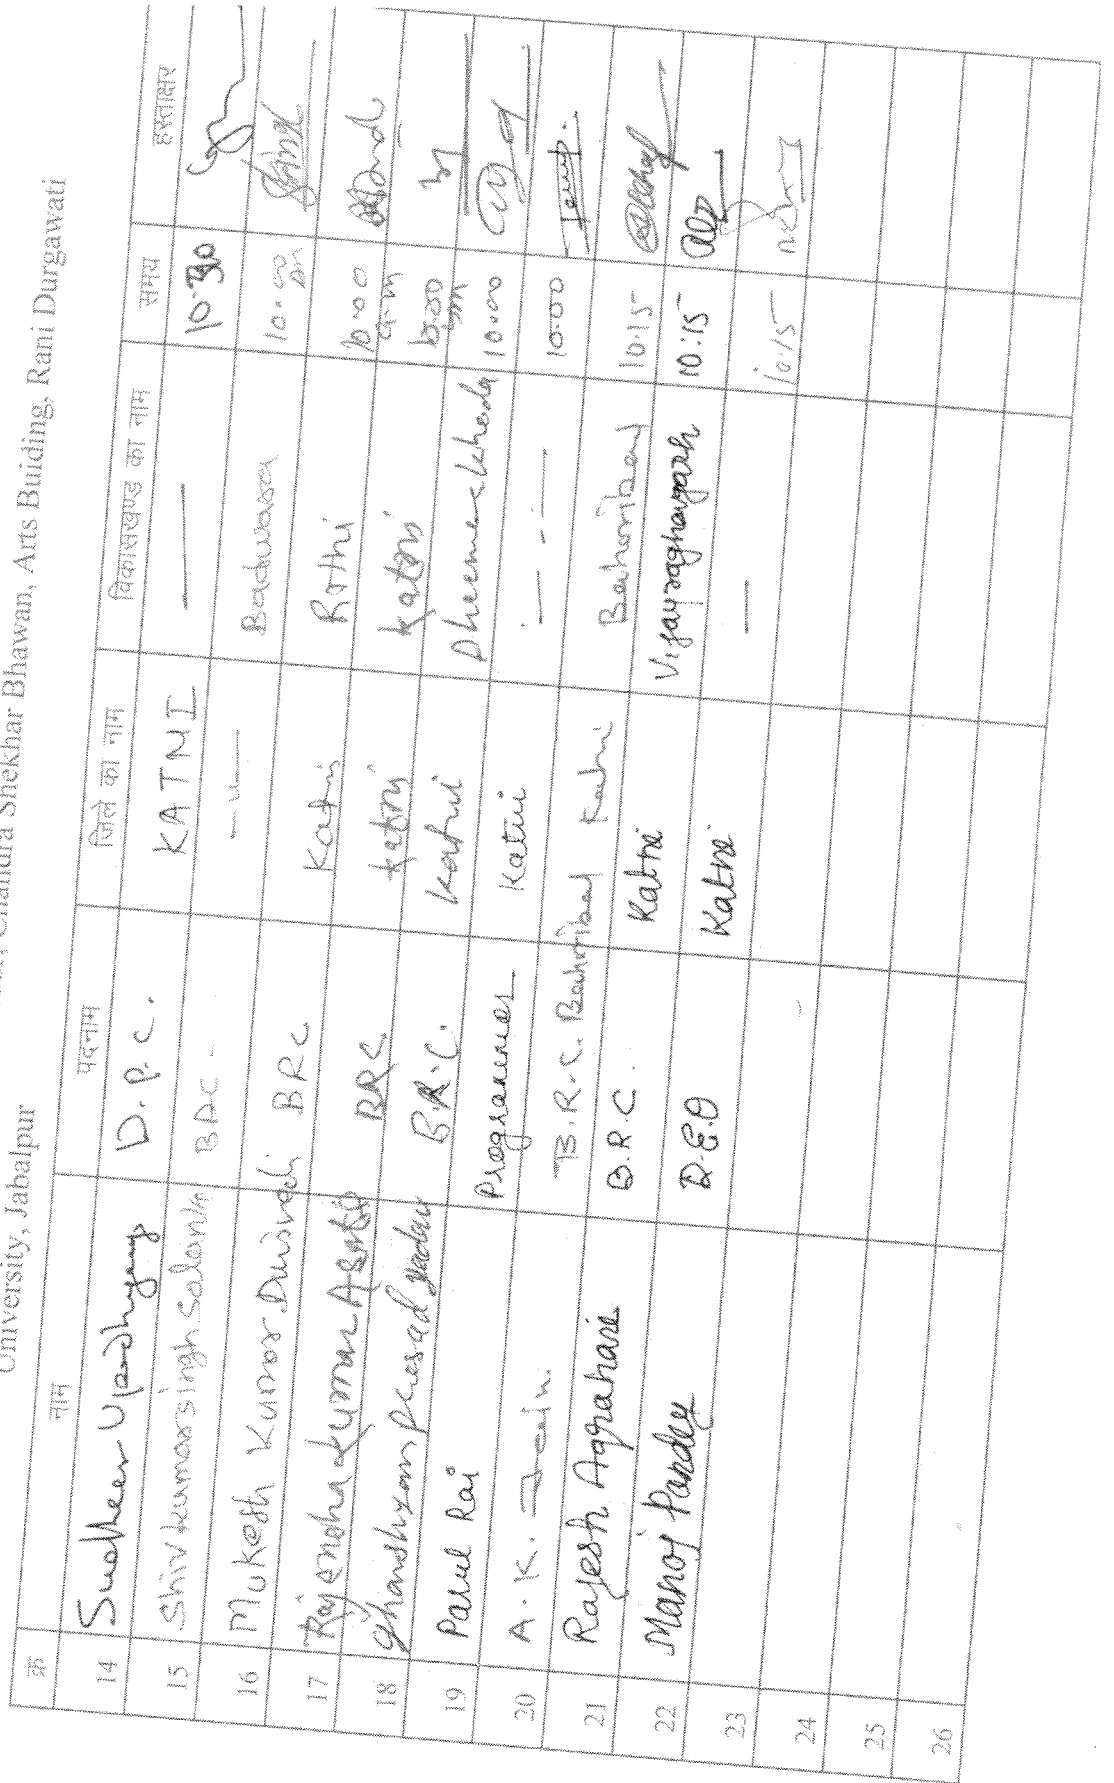 Chandra Shekhar Bhawan, Arts Buiding, Rani Durgawati
University, Jabalpur
क्र नाम पदनाम जिले का नाम विकासखण्ड का नाम समय हस्ताक्षर
14 Sudheer Upadhyay D.P.C. KATNI — 10.30
15 Shiv kumar singh Solanki BAC - —"— Badwara 10.00 am
16 Mukesh Kumar Dwivedi BRC Katni Rithi 10.00 a.m
17 Rajendra Kumar Asati BRC katni katni 10.00 am
18 Ghanshyam prasad yadav B.R.C. Katni Dheemerkheda 10.00
19 Parul Rai Programmer Katni 10.00
20 A.K. Jain. B.R.C. Bahoriband Katni Bahoriband 10.15
21 Rajesh Agrahari B.R.C. Katni Vijayraghavgarh 10:15
22 Manoj Pandey D.E.O Katni — 10.15
23
24
25
26